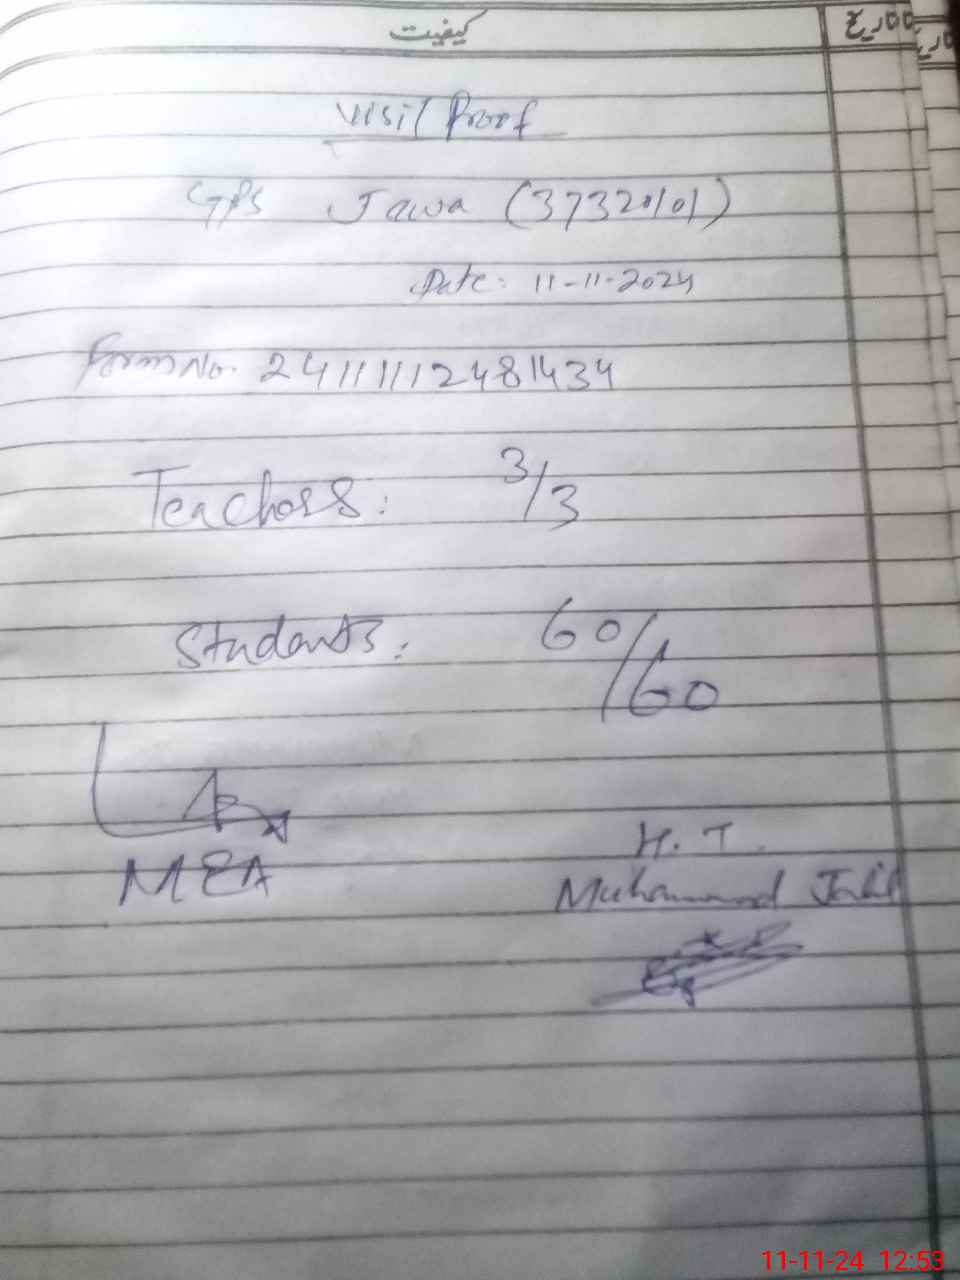 کیفیت
تاریخ
Visit Proof
GPS Jawa (37320101)
Date: 11-11-2024
Form No. 24111112481434
Teachers: 3/3
Students: 60/60
MEA
H. T.
Muhammad
11-11-24 12:53